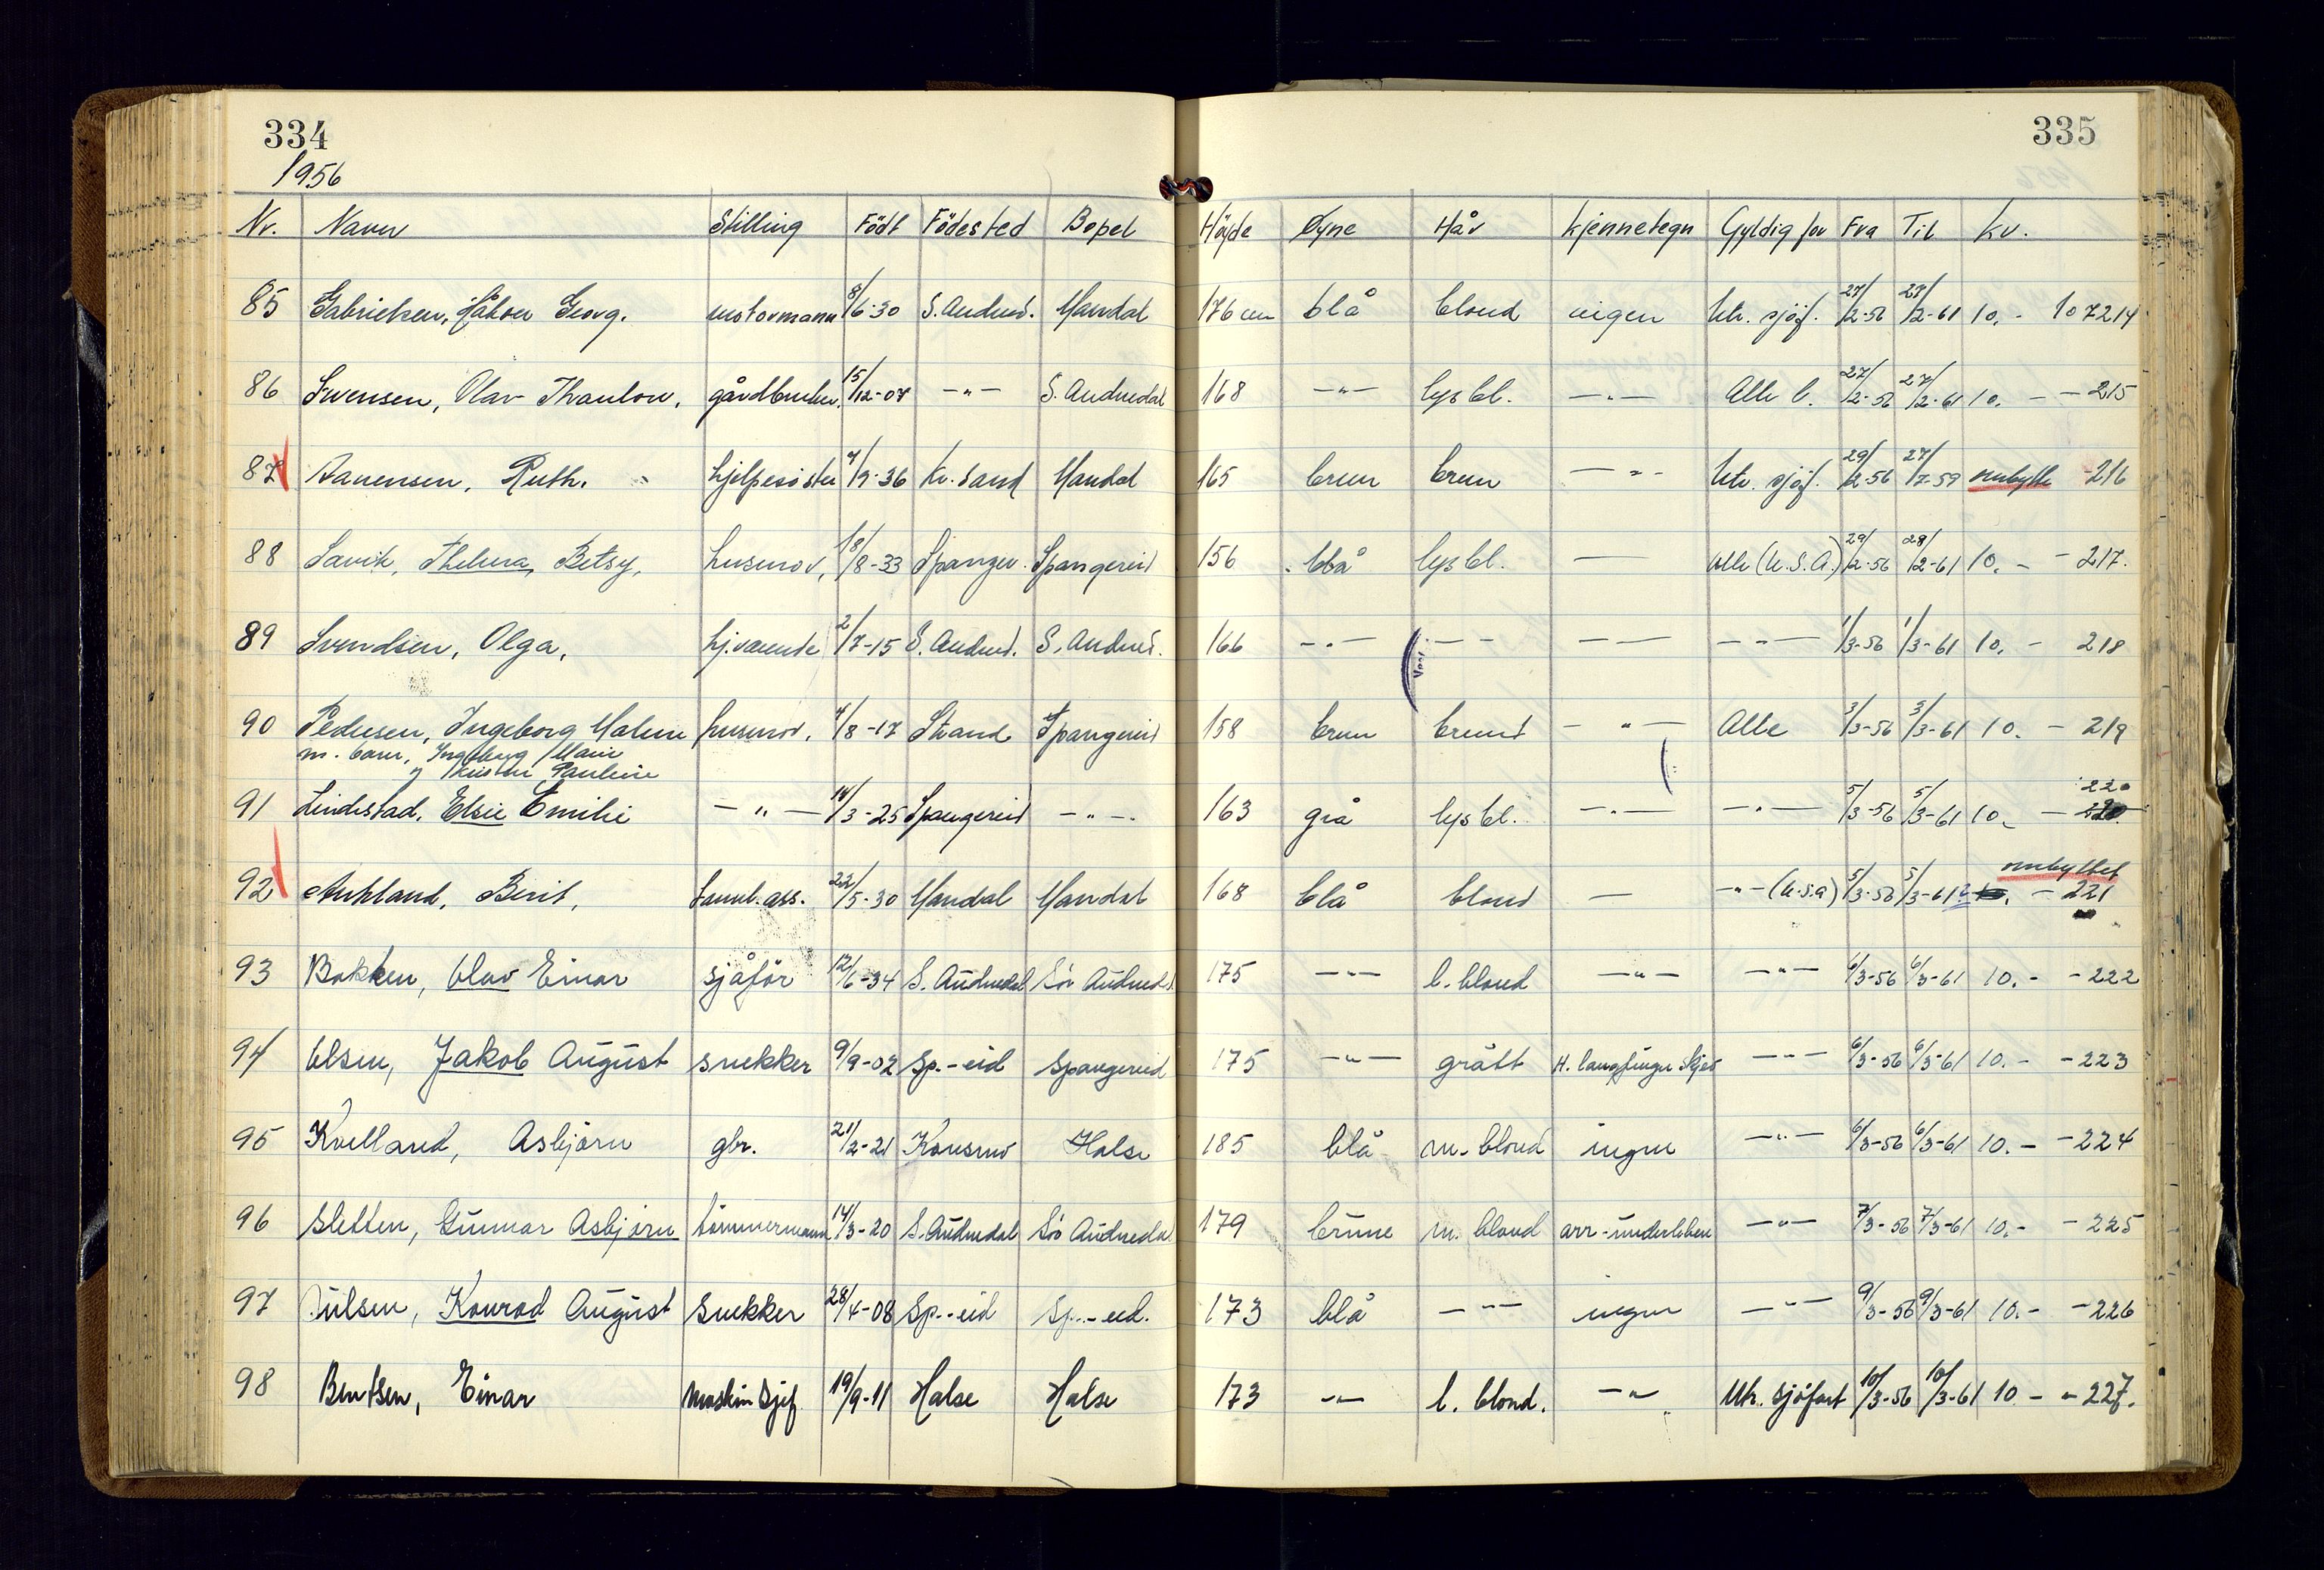 334
335
1956
Nr. Navn Stilling Född Födested Bopel Höyde Øyne Hår Kjennetegn Gyldig for Fra Til Kr.
85 Gabrielsen, Håkon Georg. motormann 8/6-30 S. Audned. Mandal 176 cm blå blond ingen Utr. sjöf. 27/2-56 27/2-61 10.- 107214
86 Svensen, Olav Thaulow. gårdbruker. 15/12-07 -"- S. Audnedal 168 -"- lys bl. -"- Alle l. 27/2-56 27/2-61 10. - -215
87 Aanensen, Ruth. hjelpesöster 4/9-36 Kr. sand Mandal 165 brun brun -"- Utr. sjöf. 29/2-56 27/7-59 ombytte -216
88 Savik, Thelma, Betsy, husmor, 18/8-33 Spanger. Spangereid 156 blå lys bl. — alle (U.S.A.) 29/2-56 28/2-61 10. - -217.
89 Svendsen, Olga, hj.værende 2/7-15 S. Audned. S. Audned. 166 -"- -"- — -"- 1/3-56 1/3-61 10. - 218
90 Pedersen, Ingeborg Malene husmor, 4/8-17 Strand Spangereid 158 brun brunt -"- Alle 3/3-56 3/3-61 10. - 219
m. barn, Ingeborg Marie
og Kirsten Pauline
220
91 Lindestad, Elsie Emilie -"- 14/3-25 Spangereid -"- 163 grå lys bl. -"- -"- 5/3-56 5/3-61 10. - 220
ombyttet
92 Aukland, Berit, tannl. ass. 22/5-30 Mandal Mandal 168 blå blond — -"- (U.S.A) 5/3-56 5/3-61 10. - 221
93 Bakken, Olav Einar sjåför 12/6-34 S. Audnedal Sör Audnedal 175 -"- l. blond -"- -"- 6/3-56 6/3-61 10.- -222
94 Olsen, Jakob August snekker 9/9-02 Sp.-eid Spangereid 175 -"- grått H. langfinger skjev -"- 6/3-56 6/3-61 10.- -223
95 Kvelland, Asbjörn gbr. 21/2-21 Konsmo Halse 185 blå m. blond ingen -"- 6/3-56 6/3-61 10.- -224
96 Sletten, Gunnar Asbjörn tömmermann 14/3-20 S. Audnedal Sör Audnedal 179 brune m. blond arr-underleben -"- 7/3-56 7/3-61 10.- -225
97 Julsen, Konrad August Snekker 28/4-08 Sp.-eid Sp.-eid. 173 blå -"- ingen -"- 9/3-56 9/3-61 10.- -226
98 Bentsen, Einar Maskinsjef 19/9-11 Halse Halse 173 -"- l. blond. -"- Utr. sjöfart 10/3-56 10/3-61 10 - -227.